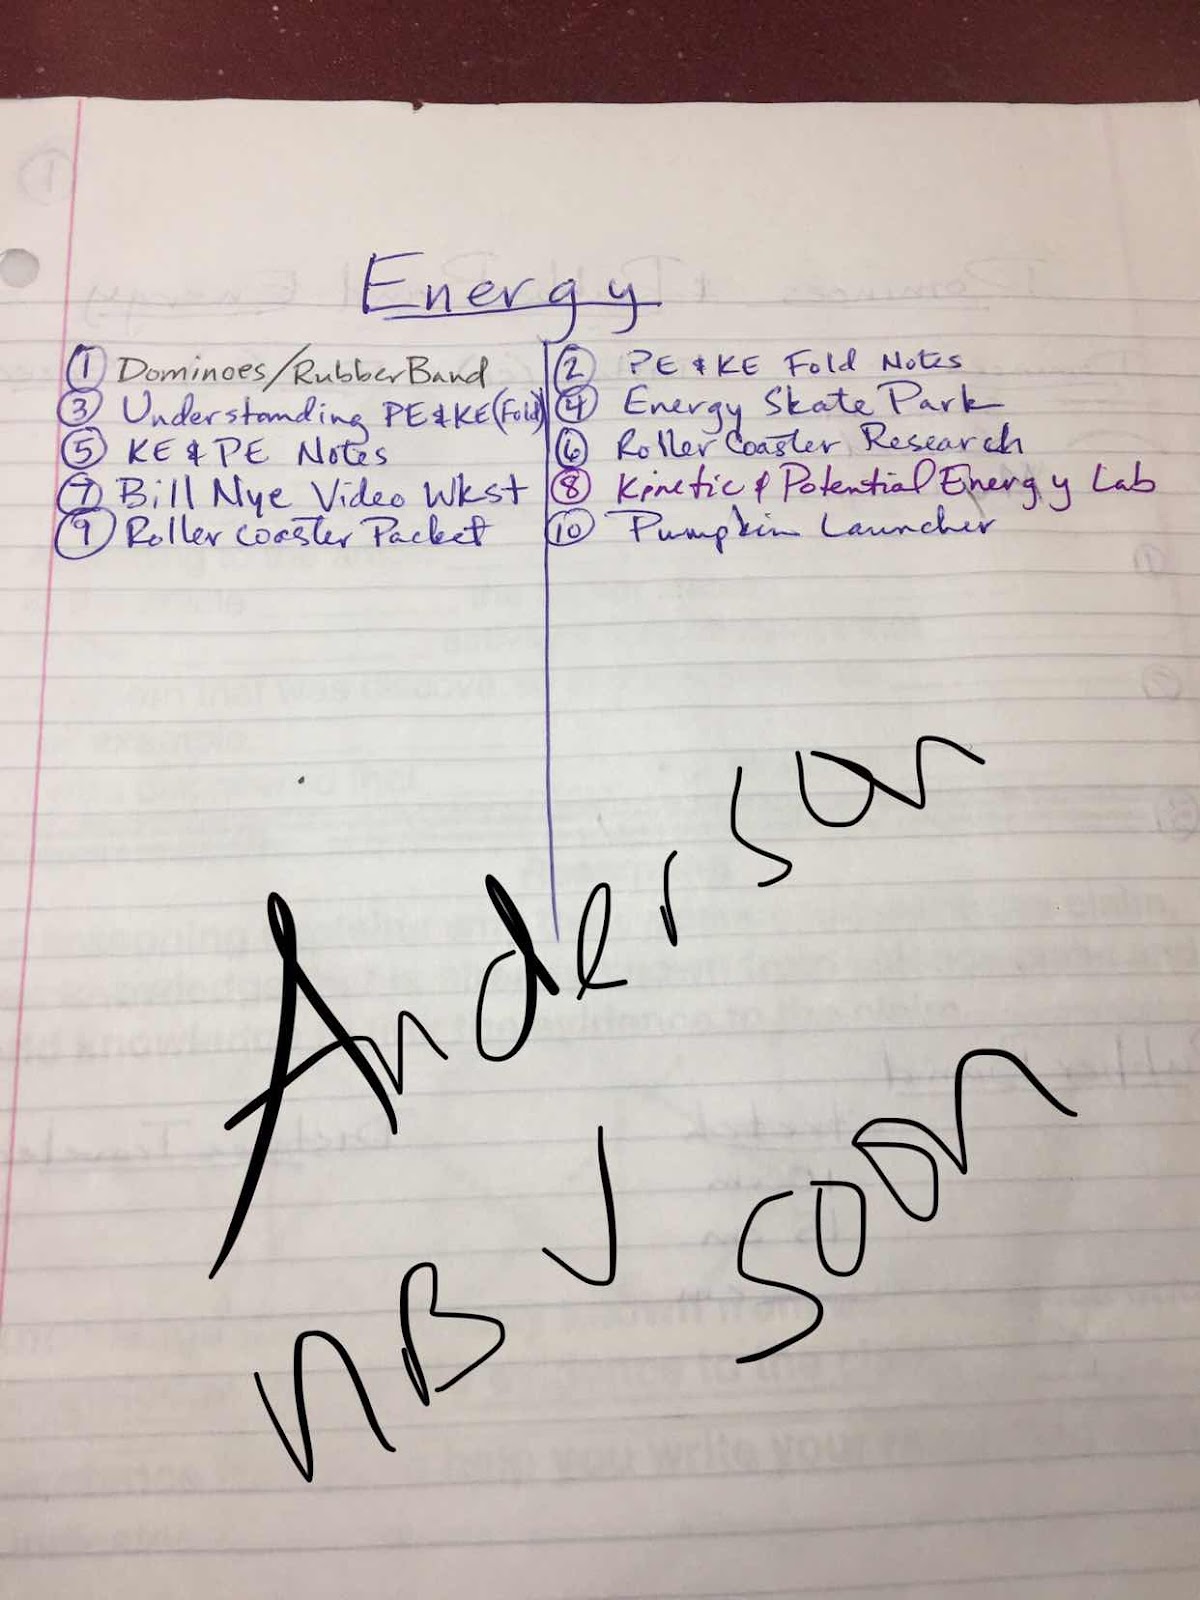 Energy
① Dominoes/Rubber Band ② PE & KE Fold Notes
③ Understanding PE & KE (Fold) ④ Energy Skate Park
⑤ KE & PE Notes ⑥ Roller Coaster Research
⑦ Bill Nye Video Wkst ⑧ Kinetic & Potential Energy Lab
⑨ Roller Coaster Packet ⑩ Pumpkin Launcher
Anderson
nBJ soon